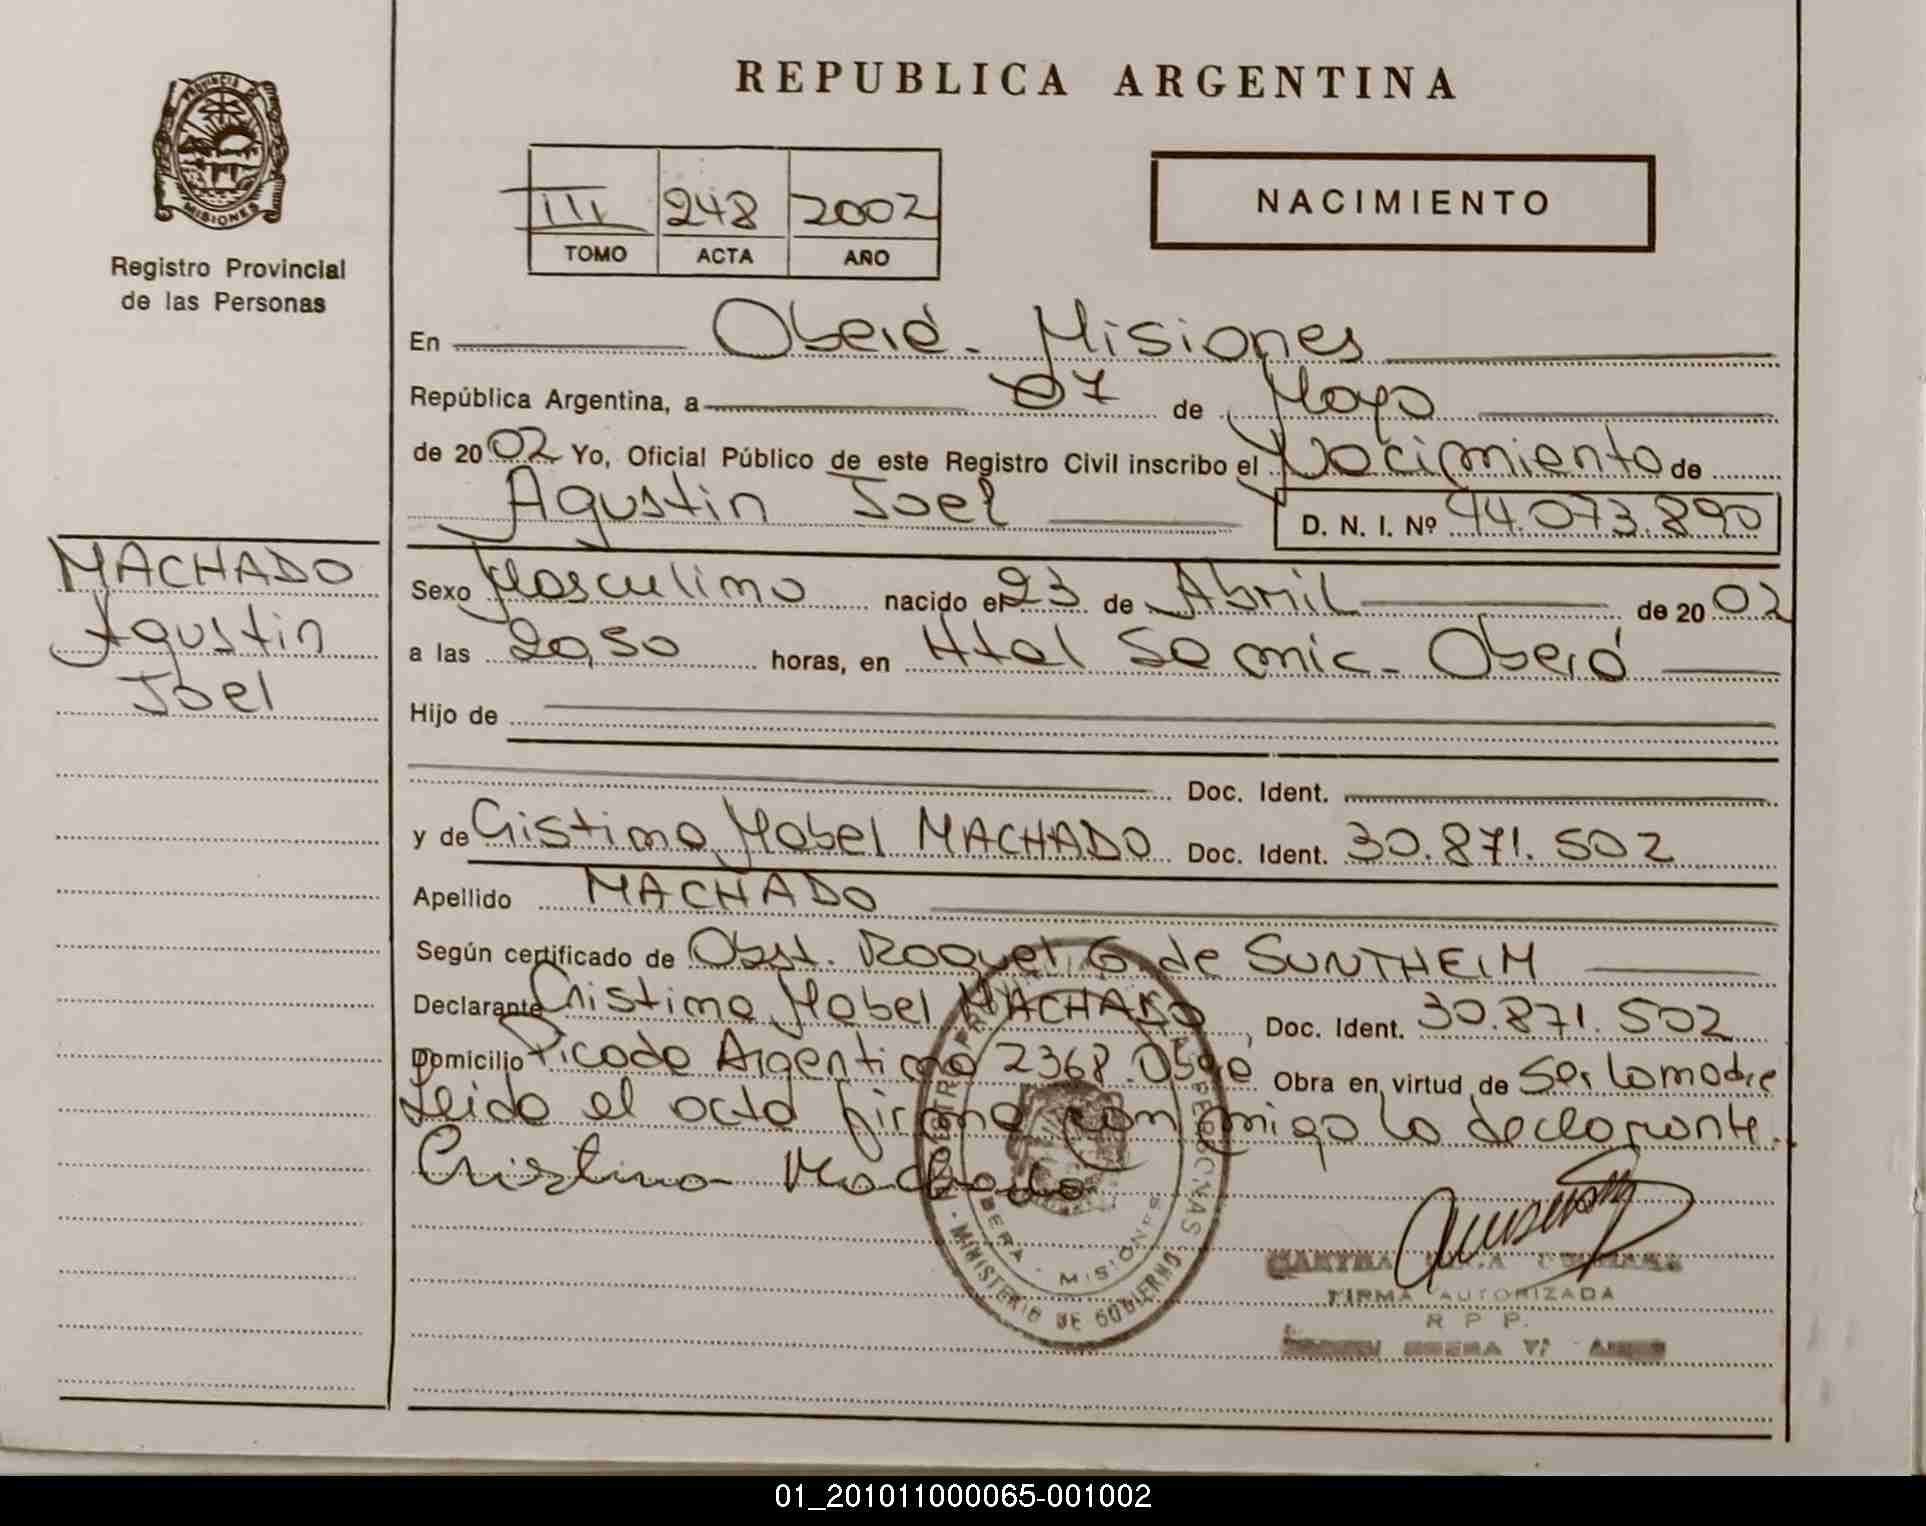 PROVINCIA DE
MISIONES
Registro Provincial
de las Personas
MACHADO
Agustin
Joel
REPUBLICA ARGENTINA
III 248 2002
TOMO ACTA AÑO
NACIMIENTO
En Oberá - Misiones
República Argentina, a 07 de Mayo
de 2002 Yo, Oficial Público de este Registro Civil inscribo el Nacimiento de
Agustin Joel D. N. I. Nº 44.073.890
Sexo Masculino nacido el 23 de Abril de 2002
a las 20,50 horas, en Htal Samic - Oberá
Hijo de
Doc. Ident.
y de Cristina Mabel MACHADO Doc. Ident. 30.871.502
Apellido MACHADO
Según certificado de Obst. Raquel G. de SUNTHEIM
Declarante Cristina Mabel MACHADO, Doc. Ident. 30.871.502
Domicilio Picada Argentina 2368 Oberá Obra en virtud de Ser la madre
Leida el acta firma con migo la declarante.
Cristina Machado
OBERA - MISIONES
MINISTERIO DE GOBIERNO
FIRMA AUTORIZADA
R P P.